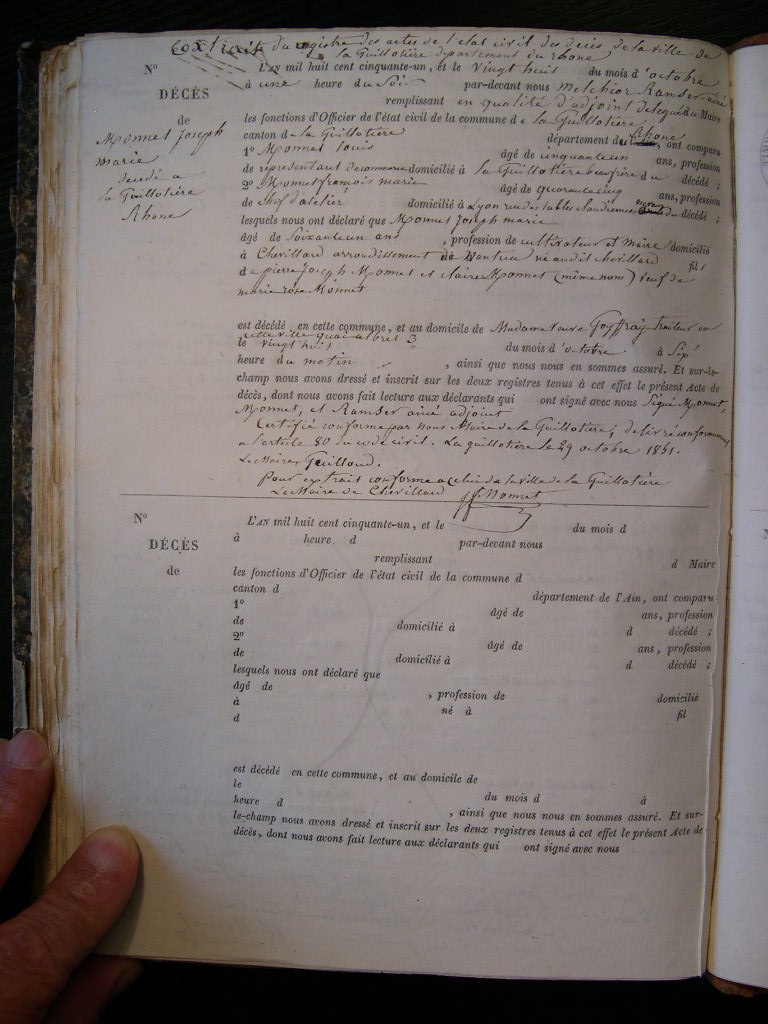 Extrait du registre des actes de l'état civil des décès de la ville de
la Guillotière département du rhône
N°
DÉCÈS
de
Monnet Joseph
marie
décédé a
la Guillotière
Rhône
L'AN mil huit cent cinquante-un, et le vingt huit du mois d'octobre
à une heure du Soir par-devant nous Melchior Ramser ainé
remplissant en qualité d'adjoint délégué du Maire
les fonctions d'Officier de l'état civil de la commune d e la Guillotière
canton d e la Guillotière département du Rhône, ont comparu
1° Monnet Louis âgé de cinquante un ans, profession
de représentant de commerce domicilié à la Guillotière beaufrère du décédé ;
2° Monnet françois marie âgé de quarante cinq ans, profession
de Chef d'atelier domicilié à Lyon rue des tables claudiennes neveu du décédé ;
lesquels nous ont déclaré que Monnet Joseph marie
âgé de Soixante un ans, profession de cultivateur et maire domicilié
à Chevillard arrondissement de Nantua né audit chevillard fil s
d e pierre Joseph Monnet et claire Monnet (même nom) veuf de
marie rose Monnet
est décédé en cette commune, et au domicile de Madame veuve Joffray traiteur en
cette ville quai
le vingt huit du mois d'octobre à Six
heure du matin, ainsi que nous nous en sommes assuré. Et sur-le-
champ nous avons dressé et inscrit sur les deux registres tenus à cet effet le présent Acte de
décès, dont nous avons fait lecture aux déclarants qui ont signé avec nous Signé Monnet,
Monnet, et Ramser ainé adjoint
Certifié conforme par nous Maire de la Guillotière, délivré conformément
a l'article 80 du code civil. La guillotière le 29 octobre 1851.
Le Maire, Guilloud.
Pour extrait conforme a celui de la ville de la Guillotière
Le Maire de Chevillard Monnet
N°
DÉCÈS
de
L'AN mil huit cent cinquante-un, et le du mois d
à heure d par-devant nous
remplissant d Maire
les fonctions d'Officier de l'état civil de la commune d
canton d département de l'Ain, ont comparu
1° âgé de ans, profession
de domicilié à d décédé ;
2° âgé de ans, profession
de domicilié à d décédé ;
lesquels nous ont déclaré que
âgé de , profession de domicilié
à né à
d fil
est décédé en cette commune, et au domicile de
le du mois d à
heure d , ainsi que nous nous en sommes assuré. Et sur-
le-champ nous avons dressé et inscrit sur les deux registres tenus à cet effet le présent Acte de
décès, dont nous avons fait lecture aux déclarants qui ont signé avec nous